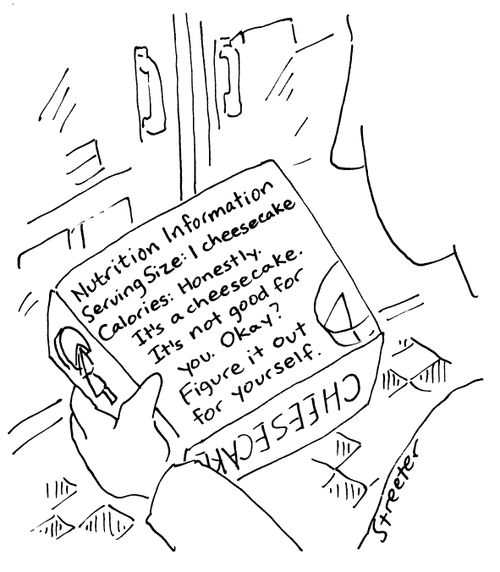 Nutrition Information
Serving Size: 1 cheesecake
Calories: Honestly.
It's a cheesecake.
It's not good for
you. Okay?
Figure it out
for yourself.
CHEESECAKE
Streeter